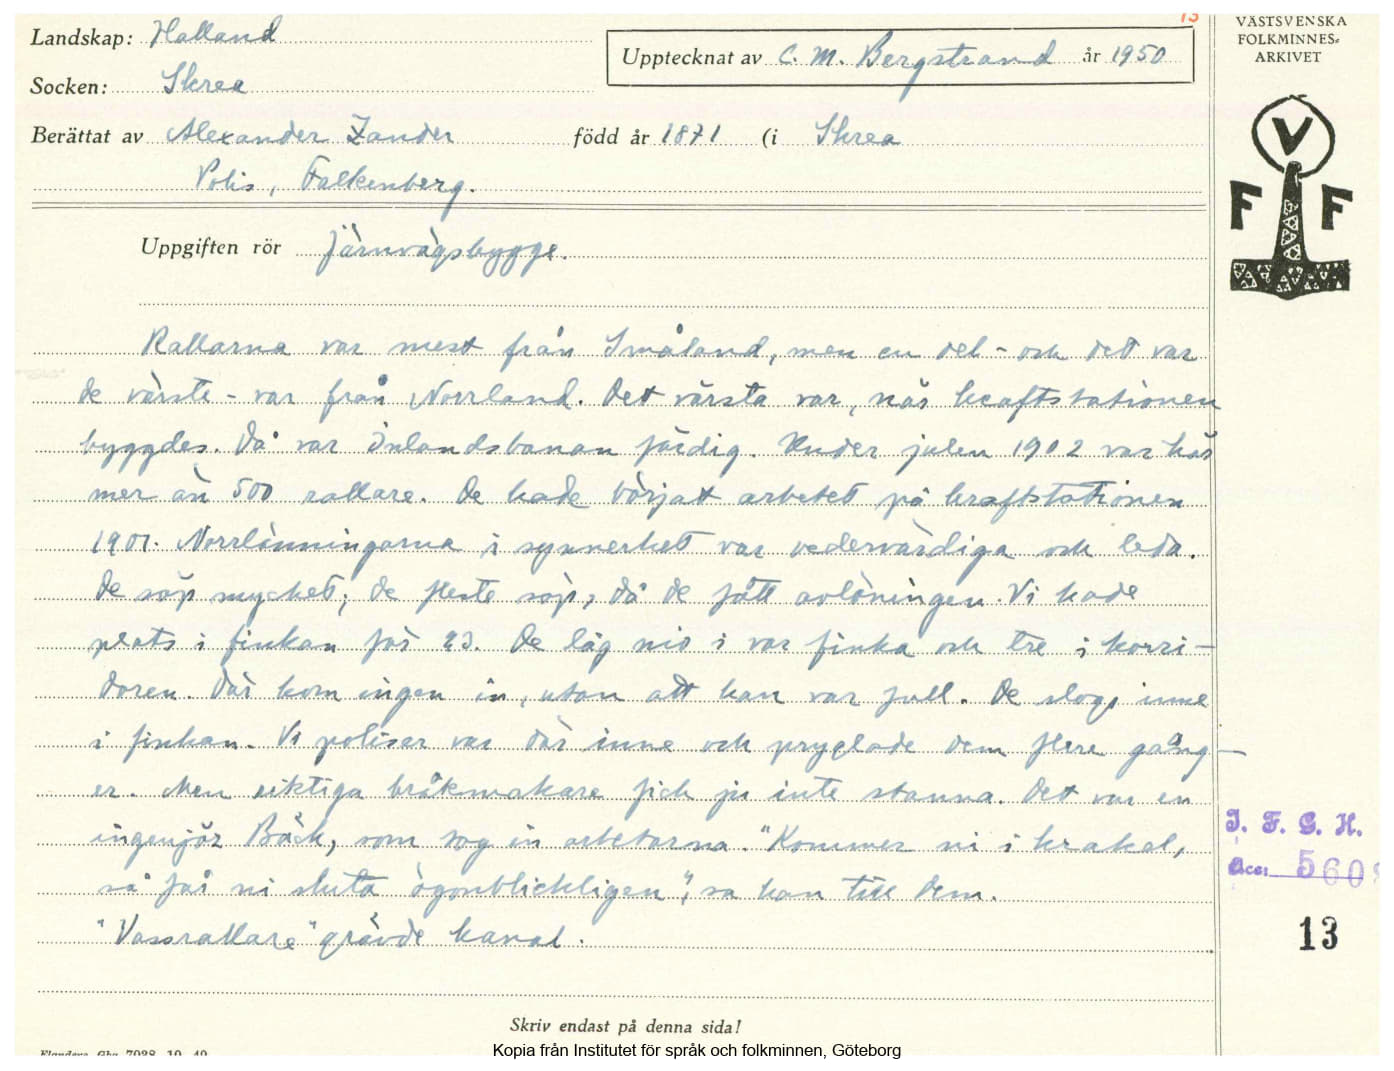 13
Landskap: Halland
Upptecknat av C. M. Bergstrand år 1950
VÄSTSVENSKA
FOLKMINNES-
ARKIVET
Socken: Skrea
Berättat av Alexander Zander född år 1871 (i Skrea
Polis, Falkenberg.
V
F F
Uppgiften rör Järnvägsbygge.
Rallarna var mest från Småland, men en del - och det var
de värste - var från Norrland. Det värsta var, när kraftstationen
byggdes. Då var Inlandsbanan färdig. Under julen 1902 var här
mer än 500 rallare. De hade börjat arbetet på kraftstationen
1901. Norrlänningarna i synnerhet var vedervärdiga och leda.
De söp mycket; de fleste söp, då de fått avlöningen. Vi hade
plats i finkan för 23. De låg nio i var finka och tre i korri-
doren. Där kom ingen in, utan att han var full. De slogs inne
i finkan. Vi poliser var där inne och pryglade dem flere gång-
er. Men riktiga bråkmakare fick ju inte stanna. Det var en
ingenjör Bäck, som tog in arbetarna. "Kommer ni i krakel,
så får ni sluta ögonblickligen", sa han till dem.
"Vassrallare" grävde kanal.
I. F. G. H.
Acc: 5608
13
Skriv endast på denna sida!
Flanders Gbg 7028 10 49
Kopia från Institutet för språk och folkminnen, Göteborg